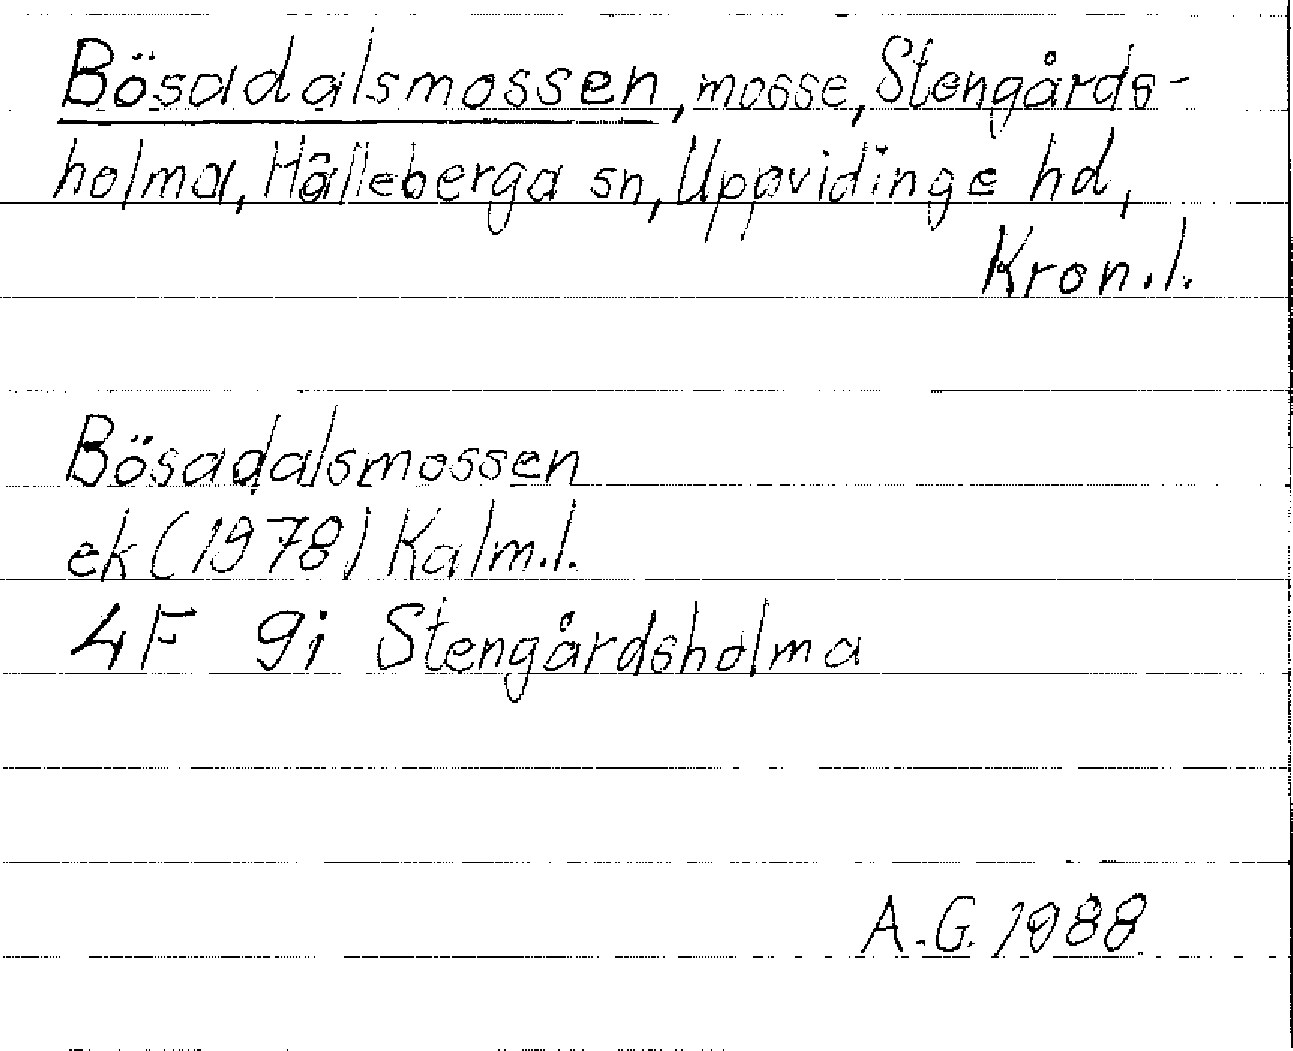 Bösadalsmossen, mosse, Stengårds-
holma, Hälleberga sn, Uppvidinge hd,
Kron.l.
Bösadalsmossen
ek (1978) Kalm.l.
4F 9i Stengårdsholma
A.G. 1988